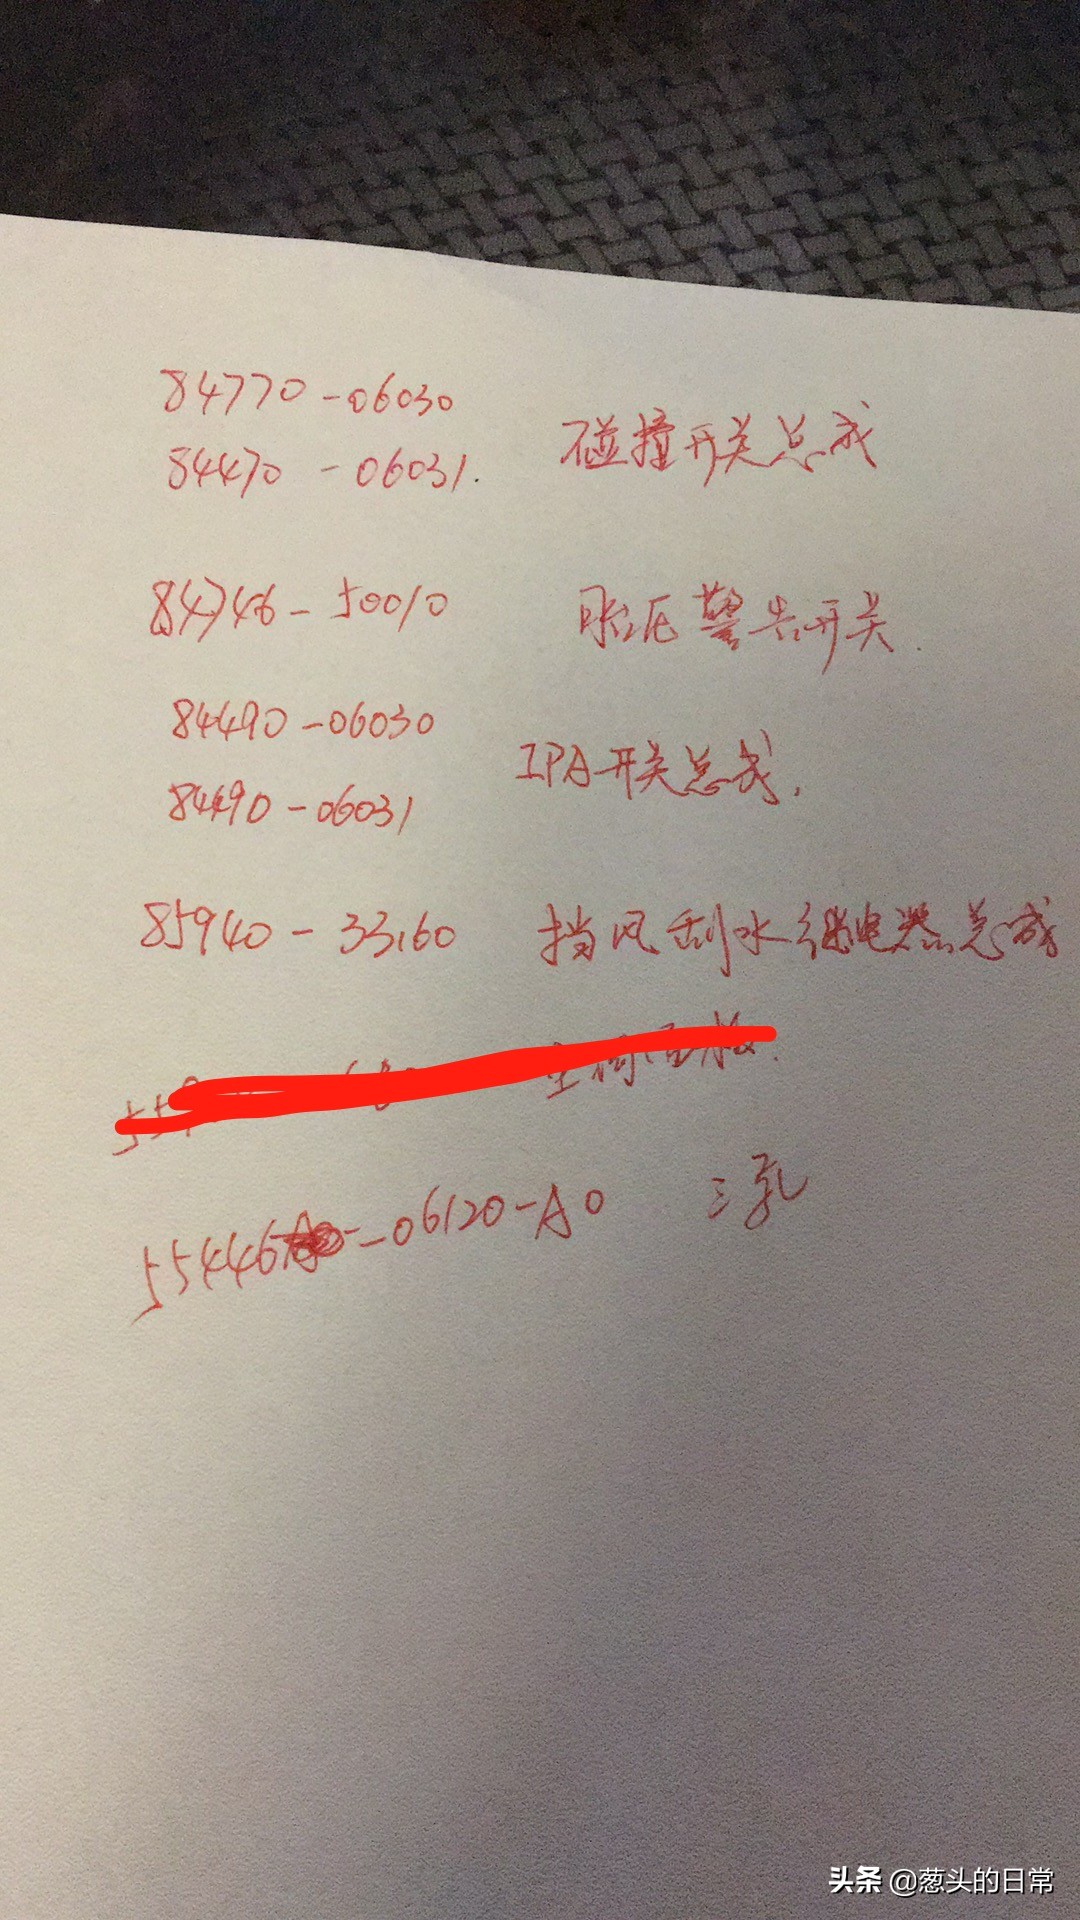 84770-06030
84470-06031.
碰撞开关总成
84746-50010 胎压警告开关.
84490-06030
84490-06031
IPA开关总成.
85940-33160 挡风刮水继电器总成
55446-06120-A0 三孔
头条 @葱头的日常